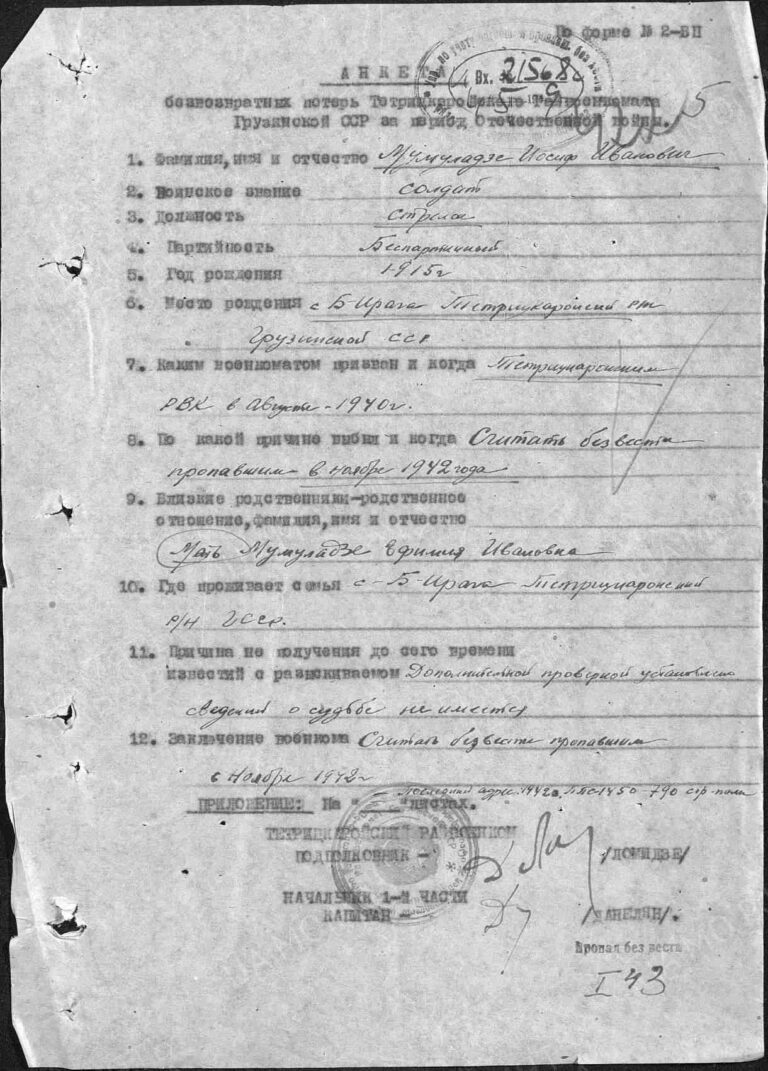 По форме № 2-БП
Вх. 21568с
АНКЕТА
5
безвозвратных потерь Тетрицкаройского Райвоенкомата
Грузинской ССР за период Отечественной войны.
1. Фамилия, имя и отчество Мумуладзе Иосиф Иванович
2. Воинское звание солдат
3. Должность стрелок
4. Партийность Беспартийный
5. Год рождения 1915г
6. Место рождения с Б-Ирага Тетрицкаройский р-н
Грузинской ССР
7. Каким военкоматом призван и когда Тетрицкаройским
РВК в Августе - 1940г.
8. По какой причине выбыл и когда Считать без вести
пропавшим в Ноябре 1942 года
9. Близкие родственники-родственное
отношение, фамилия, имя и отчество
Мать Мумуладзе Ефимия Ивановна
10. Где проживает семья с-Б-Ирага Тетрицкаройский
Р/Н ГССР.
11. Причина не получения до сего времени
известий с разыскиваемом Дополнительной проверкой установлено
сведений о судьбе не имеется
12. Заключение военкома Считать без вести пропавшим
с Ноября 1942г
последний адрес 1942г. ППС-1450 790 стр-полк
ПРИЛОЖЕНИЕ: На " "листах.
ТЕТРИЦКАРОЙСКИЙ РАЙВОЕНКОМ
ПОДПОЛКОВНИК - /ЛОМИДЗЕ/
НАЧАЛЬНИК 1-Й ЧАСТИ
КАПИТАН - /ДАНЕЛЯН/.
Пропал без вести
I 43